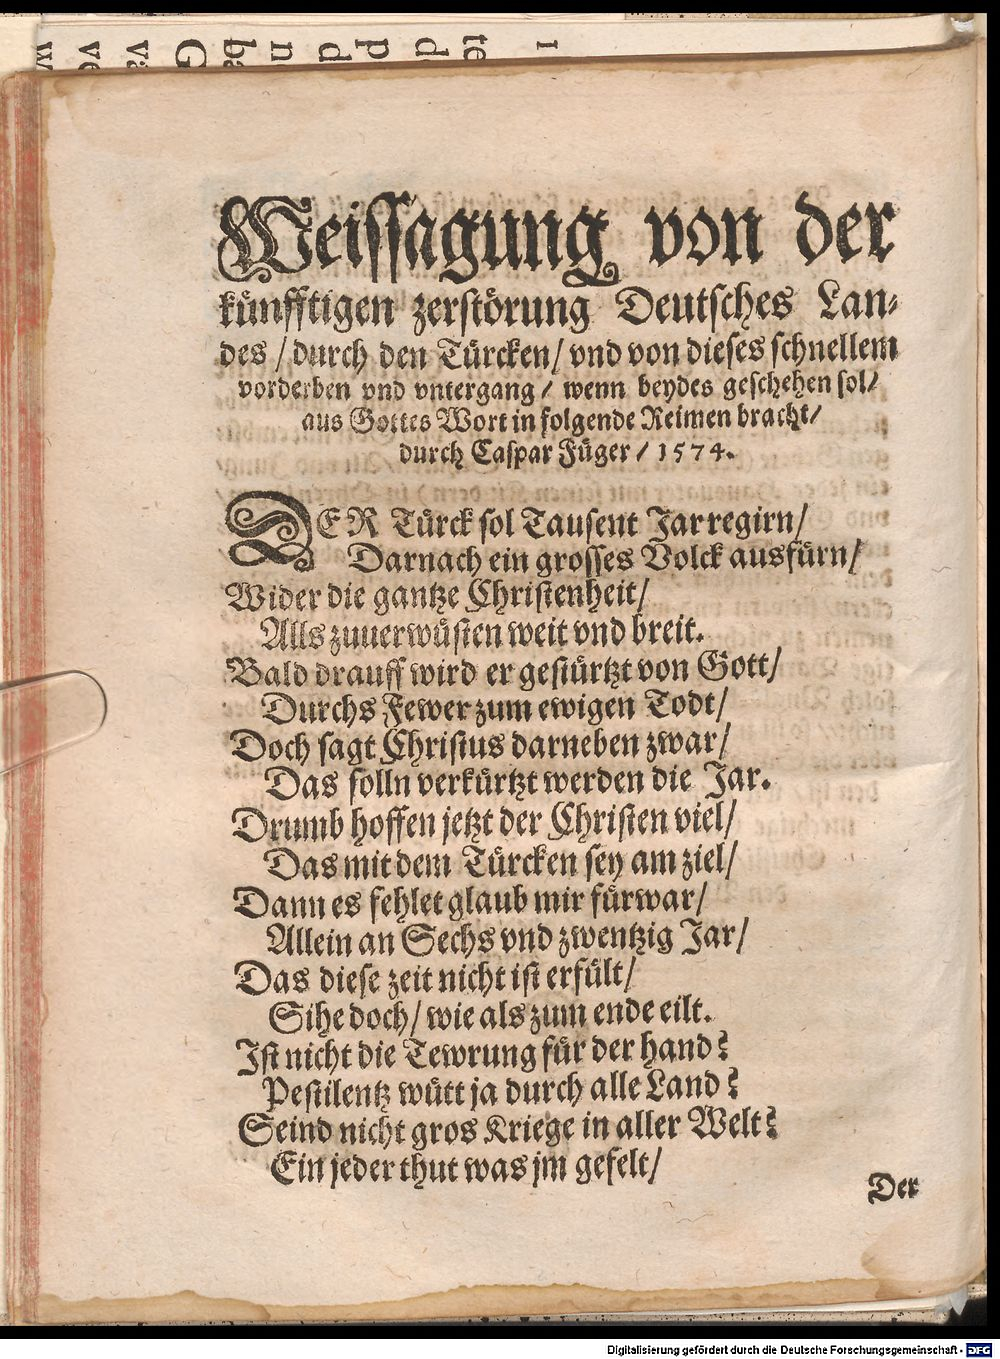 Weissagung von der
künfftigen zerstörung Deutsches Lan-
des / durch den Türcken / vnd von dieses schnellem
vorderben vnd vntergang / wenn beydes geschehen sol /
aus Gottes Wort in folgende Reimen bracht /
durch Caspar Füger / 1574.
DER Türck sol Tausent Jar regirn /
Darnach ein grosses Volck ausfürn /
Wider die gantze Christenheit /
Alls zuuerwüsten weit vnd breit.
Bald drauff wird er gestürtzt von Gott /
Durchs Fewer zum ewigen Todt /
Doch sagt Christus darneben zwar /
Das solln verkürtzt werden die Jar.
Drumb hoffen jetzt der Christen viel /
Das mit dem Türcken sey am ziel /
Dann es fehlet glaub mir fürwar /
Allein an Sechs vnd zwentzig Jar /
Das diese zeit nicht ist erfült /
Sihe doch / wie als zum ende eilt.
Ist nicht die Tewrung für der hand?
Pestilentz wütt ja durch alle Land?
Seind nicht gros Kriege in aller Welt?
Ein jeder thut was jm gefelt /
Der
Digitalisierung gefördert durch die Deutsche Forschungsgemeinschaft - DFG